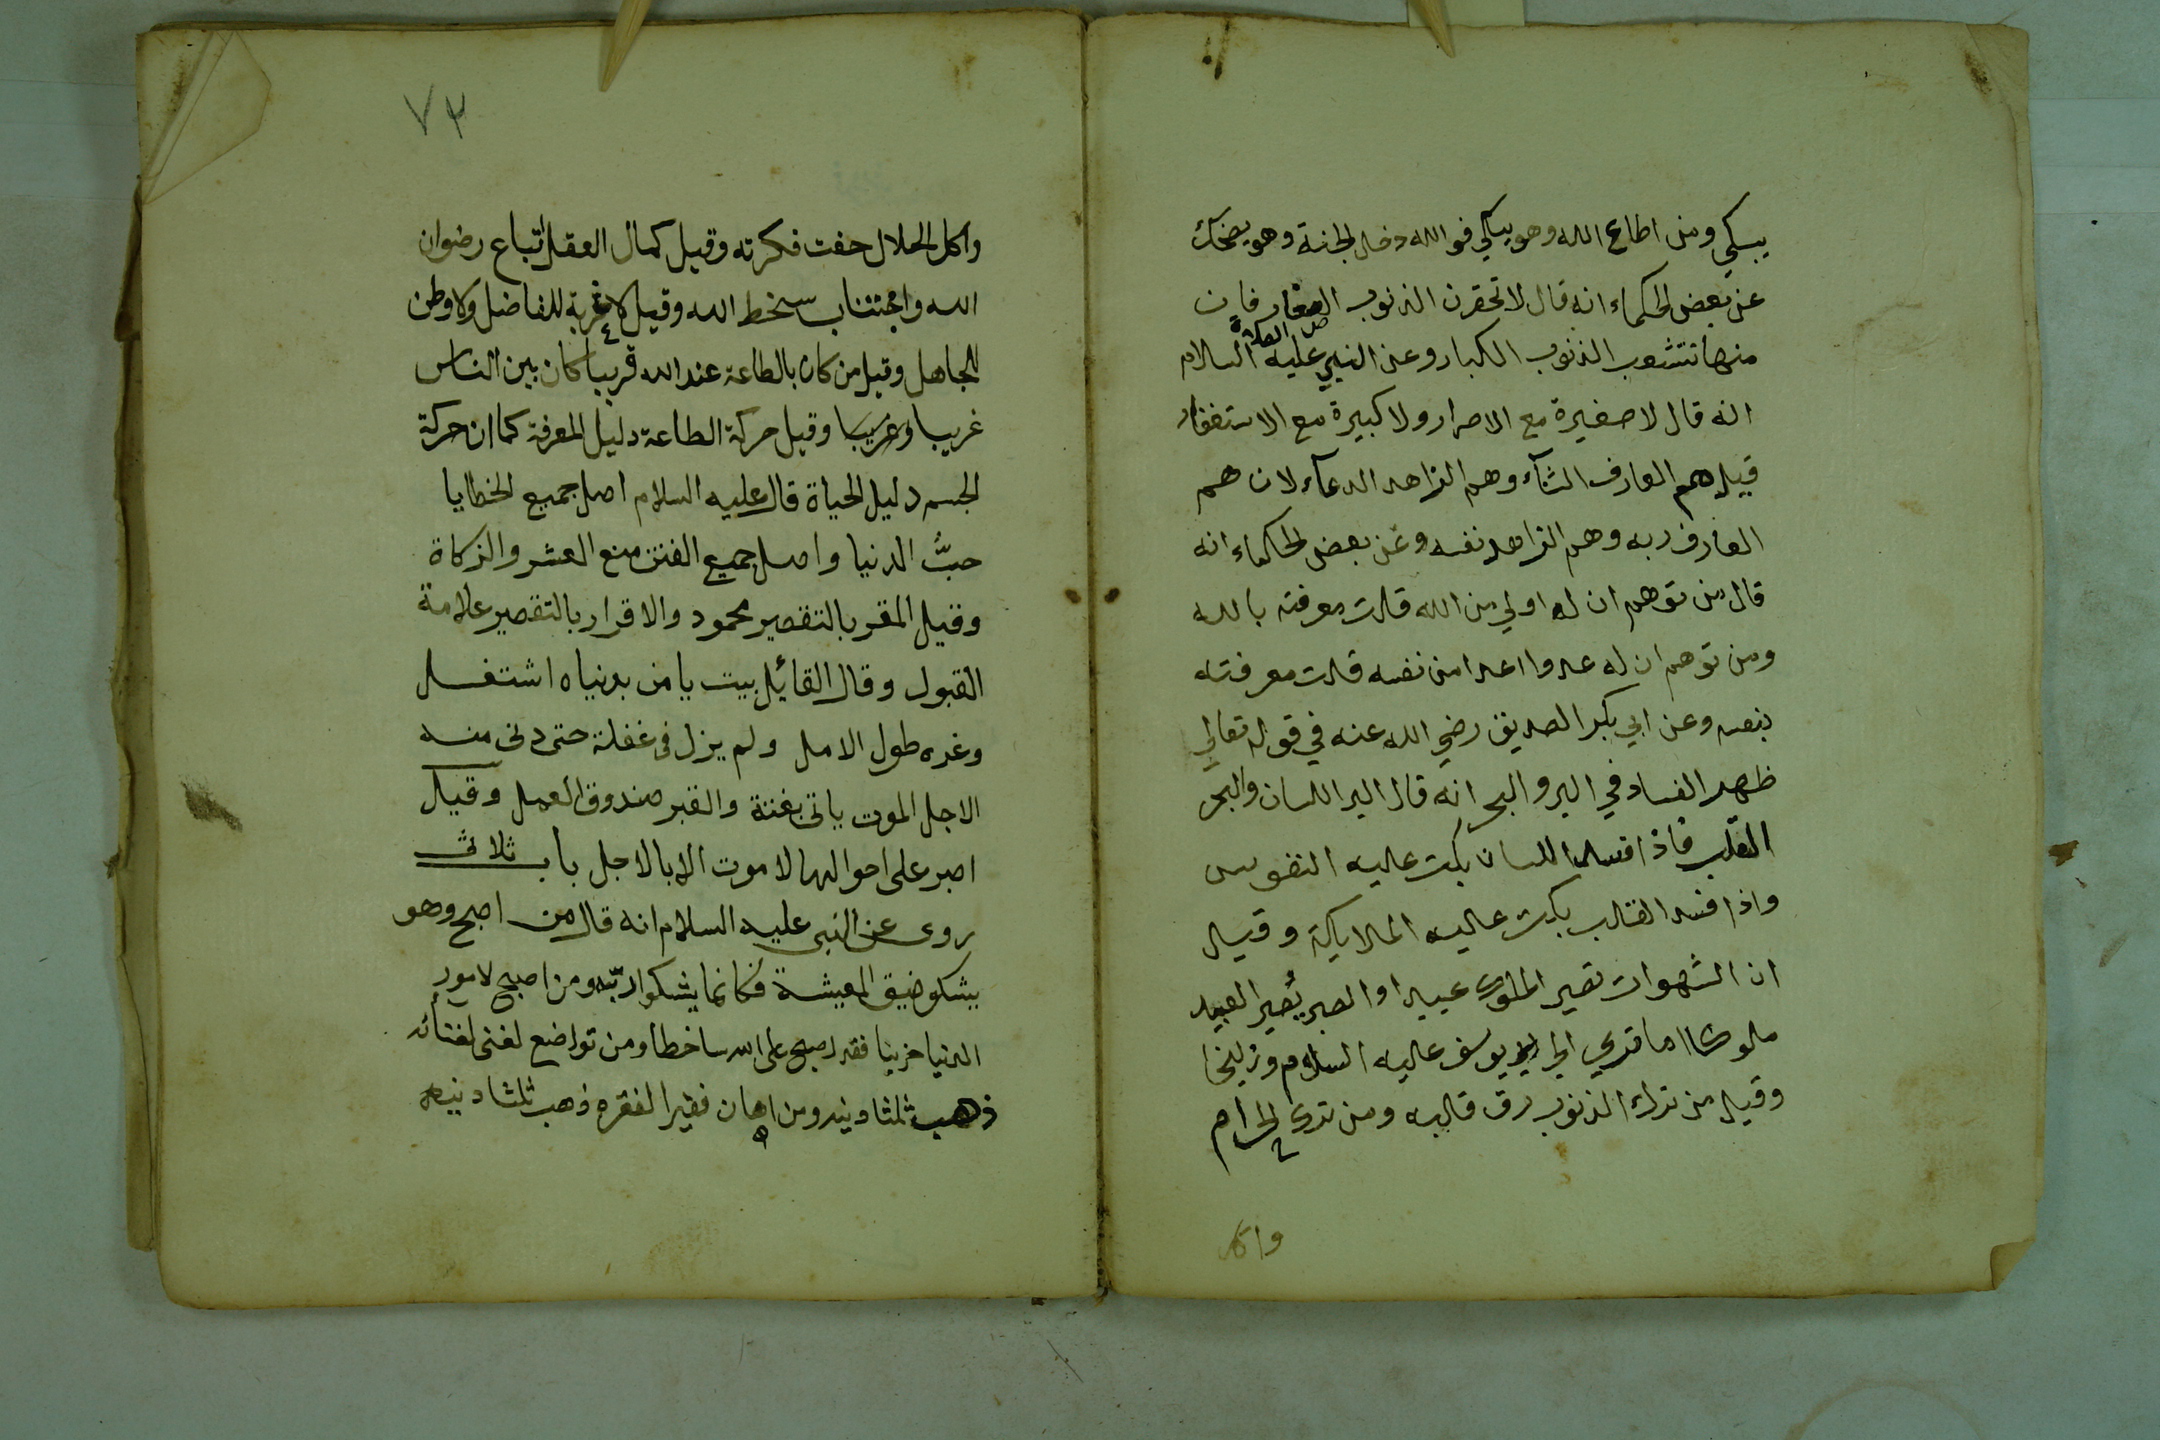 يبكي ومن اطاع الله وهو يبكي فوالله دخل الجنة وهو يضحك
عن بعض الحكماء انه قال لا تحقرن الذنوب الصغار فان
منها تتشعب الذنوب الكبار وعن النبي عليه الصلاة السلام
انه قال لا صغيرة مع الاصرار ولا كبيرة مع الاستغفار
قيل هم العارف الثناء وهم الزاهد الدعاء لان هم
العارف ربه وهم الزاهد نفسه وعن بعض الحكماء انه
قال من توهم ان له اولي من الله قلت معرفته بالله
ومن توهم ان له عدوا اعدا من نفسه قلت معرفته
بنفسه وعن ابي بكر الصديق رضي الله عنه في قوله تعالي
ظهر الفساد في البر والبحر انه قال البر اللسان والبحر
القلب فاذا افسد اللسان بكت عليه النفوس
واذا فسد القلب بكت عليه الملايكة وقيل
ان الشهوات تصير الملوك عبيدا والصبر يُصير العبيد
ملوكا اما تري الي يوسف عليه السلام وزليخا
وقيل من ترك الذنوب رق قلبه ومن ترك الحرام
واكل
٧٢
واكل الحلال صفت فكرته وقيل كمال العقل اتباع رضوان
الله واجتناب سخط الله وقيل لا غربة للفاضل ولا وطن
للجاهل وقيل من كان بالطاعة عند الله قريبا كان بين الناس
غريبا وغريبا وقيل حركة الطاعة دليل المعرفة كما ان حركة
الجسم دليل الحياة قال عليه السلام اصل جميع الخطايا
حبُّ الدنيا واصل جميع الفتن منع العشر والزكاة
وقيل المقر بالتقصير محمود والاقرار بالتقصير علامة
القبول وقال القائل بيت يا من بدنياه اشتغل
وغره طول الامل ولم يزل في غفلة حتى دنى منه
الاجل الموت ياتى بغتة والقبر صندوق العمل وقيل
اصبر على احوالها لا موت الا بالاجل باب ثلاثى
روى عن النبى عليه السلام انه قال من اصبح وهو
يشكو ضيق المعيشة فكانما يشكوا ربّه ومن اصبح لامور
الدنيا حزينا فقد اصبح على الله ساخطا ومن تواضع لغنى لغنائه
ذهب ثلثا دينه ومن اهان فقيرا لفقره ذهب ثلثا دينه